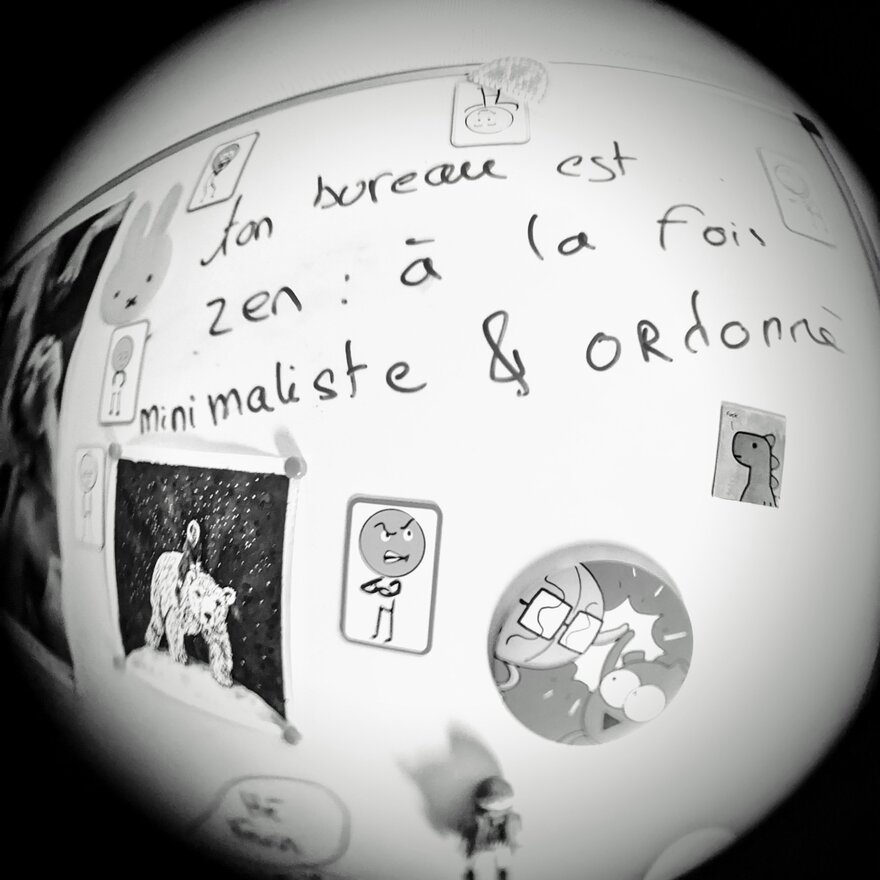 ton bureau est
zen : à la fois
minimaliste & ORdonné